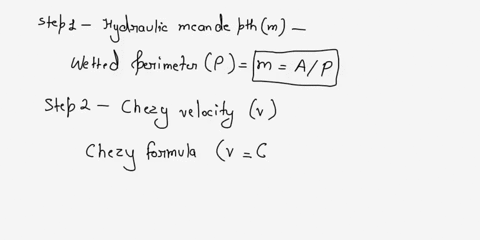 Step 1 - Hydraulic mean de pth (m) -
Wetted perimeter (P) = m = A/P
Step 2 - Chezy velocity (v)
Chezy formula (v = C